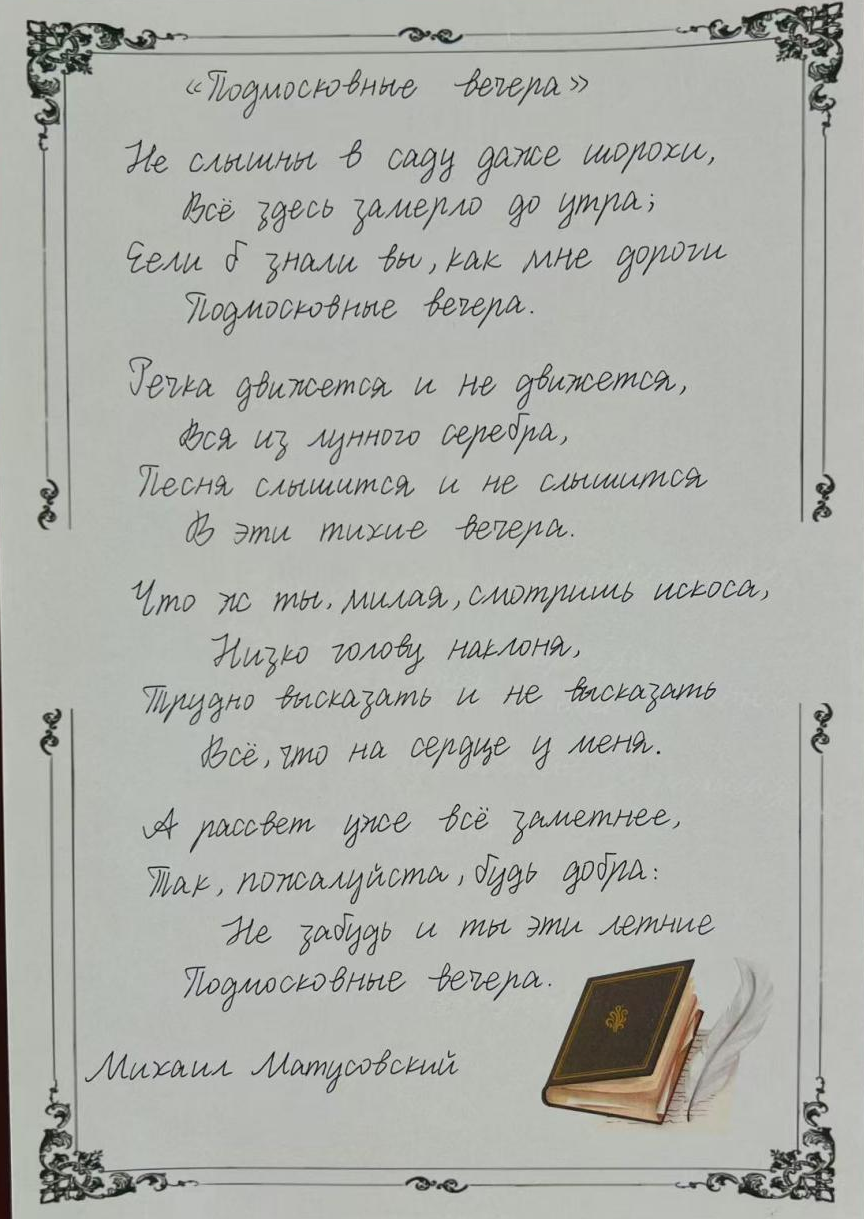 «Подмосковные вечера»
Не слышны в саду даже шорохи,
Всё здесь замерло до утра;
Если б знали вы, как мне дороги
Подмосковные вечера.
Речка движется и не движется,
Вся из лунного серебра,
Песня слышится и не слышится
В эти тихие вечера.
Что ж ты, милая, смотришь искоса,
Низко голову наклоня,
Трудно высказать и не высказать
Всё, что на сердце у меня.
А рассвет уже всё заметнее,
Так, пожалуйста, будь добра:
Не забудь и ты эти летние
Подмосковные вечера.
Михаил Матусовский